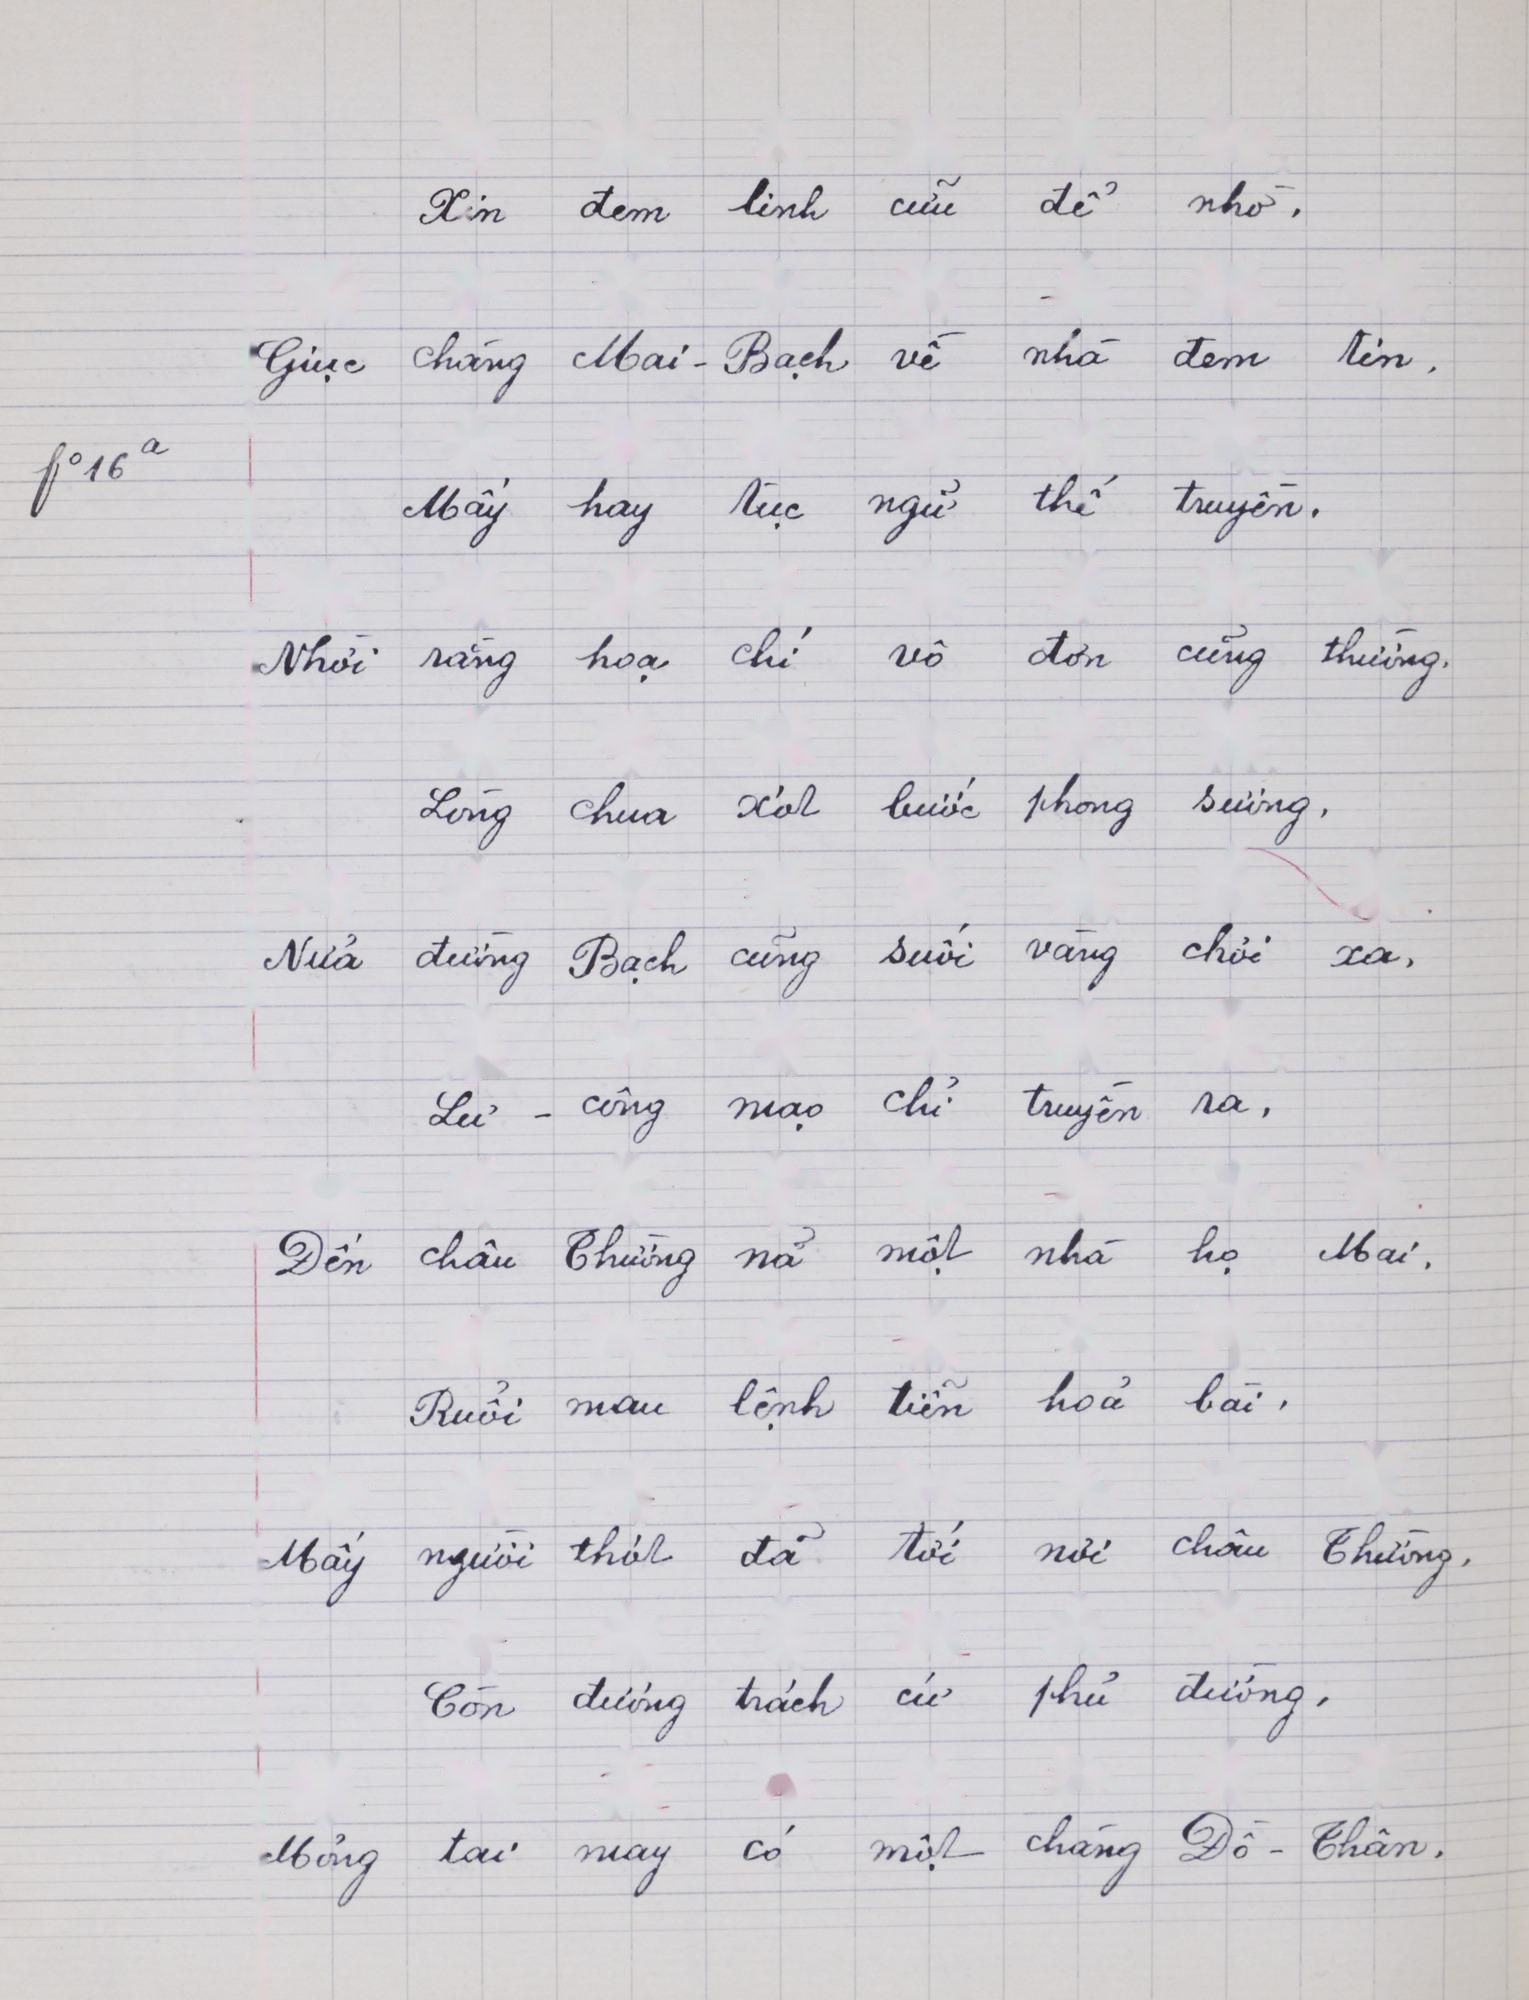 Xin đem linh cữu để nhờ.
Giục chàng Mai-Bạch về nhà đem tin.
fº16ª
Mấy hay tục ngử thế truyền.
Nhời rằng hoạ chí vô đơn cũng thường.
Lòng chưa xót bước phong sương.
Nửa đường Bạch cũng suối vàng chơi xa.
Lư - công mạo chỉ truyền ra.
Đến châu Thường nả một nhà họ Mai.
Ruổi mau lệnh tiễn hoả bài.
Mấy người thót đã tới nơi châu Thường.
Còn đương trách cứ phủ đường.
Mỏng tai may có một chàng Đồ - Thân.